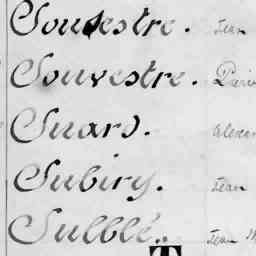 Souvestre. Jean
Souvestre. Pari
Suard. Alexan
Subiry. Jean
Sulblé. Jean M
T